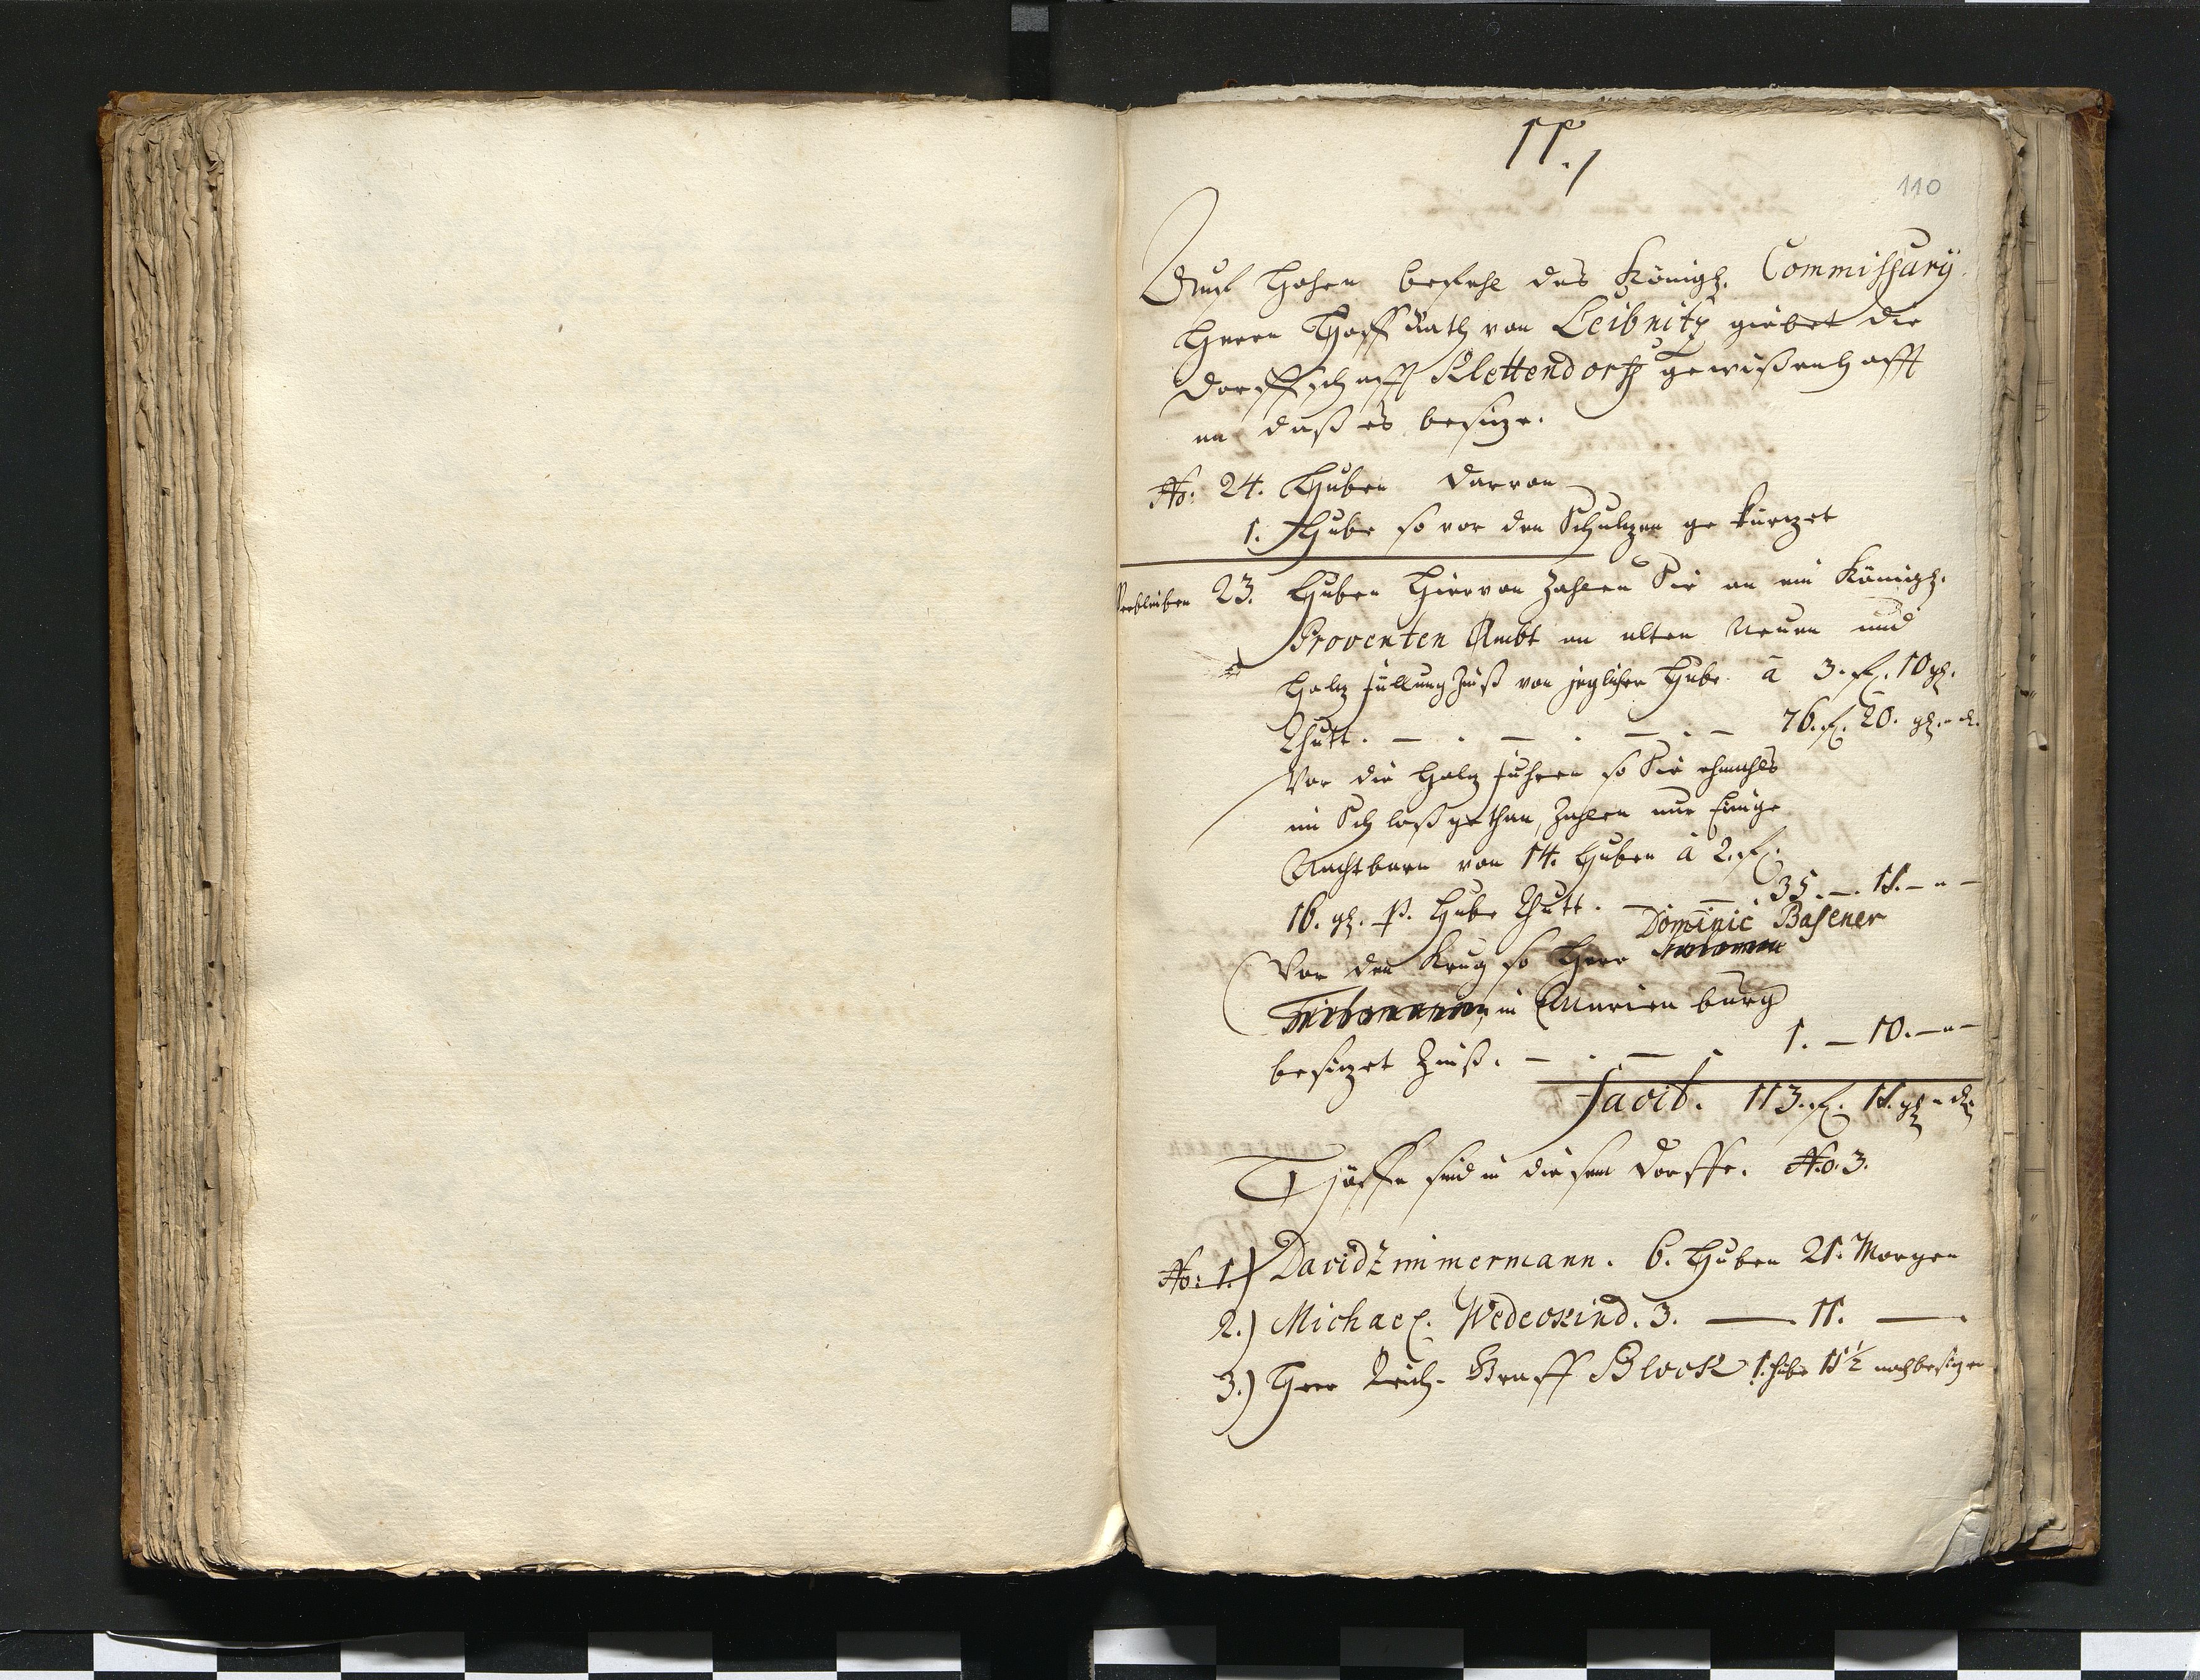 11.
110
Auf Hohen befehl des Königl. Commissary
Herrn Hoff Rath von Leibnitz giebet die
Dorffschafft Klettendorff gewißenhafft
an daß es besitze.
No: 24. Huben darvon
1. Hube so vor den Schulzen gekürtzet
Verbleiben 23. Huben Hiervon Zahlen Sie an ein Königl.
Proventen Ambt an alten Neuen und
Holtz füllung Zinß von jeglicher Hube à 3. fl. 10 gl.
Thutt. — . — . — . — 76. fl. 20. gl. - d.
Vor die Holtz fuhren so Sie ehmahls
im Schloß gethan, Zahlen nur Einige
Nachtbarn von 14. Huben à 2. fl.
16. gl. p. Hube Thutt. — — 35. — . 11. — " —
Dominic Basener
Vor den Krug so Herr
in Marienburg
besitzet Zinß. — . — . 1. — 10. — " —
Facit. 113. fl. 11. gl - d.
Höffe sind in diesem Dorffe. No. 3.
No: 1.) David Zimmermann. 6. Huben 21. Morgen
2.) Michael. Wedeckind. 3. — 11. —
3.) Herr Teich-Graff Block 1. Hube 11 1/2 noch besitzen